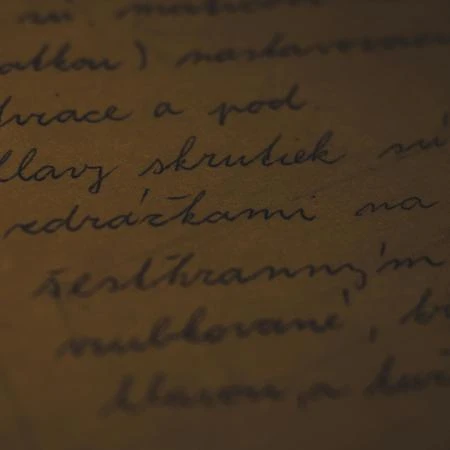 sú maticou
atkou) nastavovac
dvrace a pod.
Hlavy skrutiek sú
zdrážkami na
šesťhranným
vrubkované, b
hlavou, a tvr